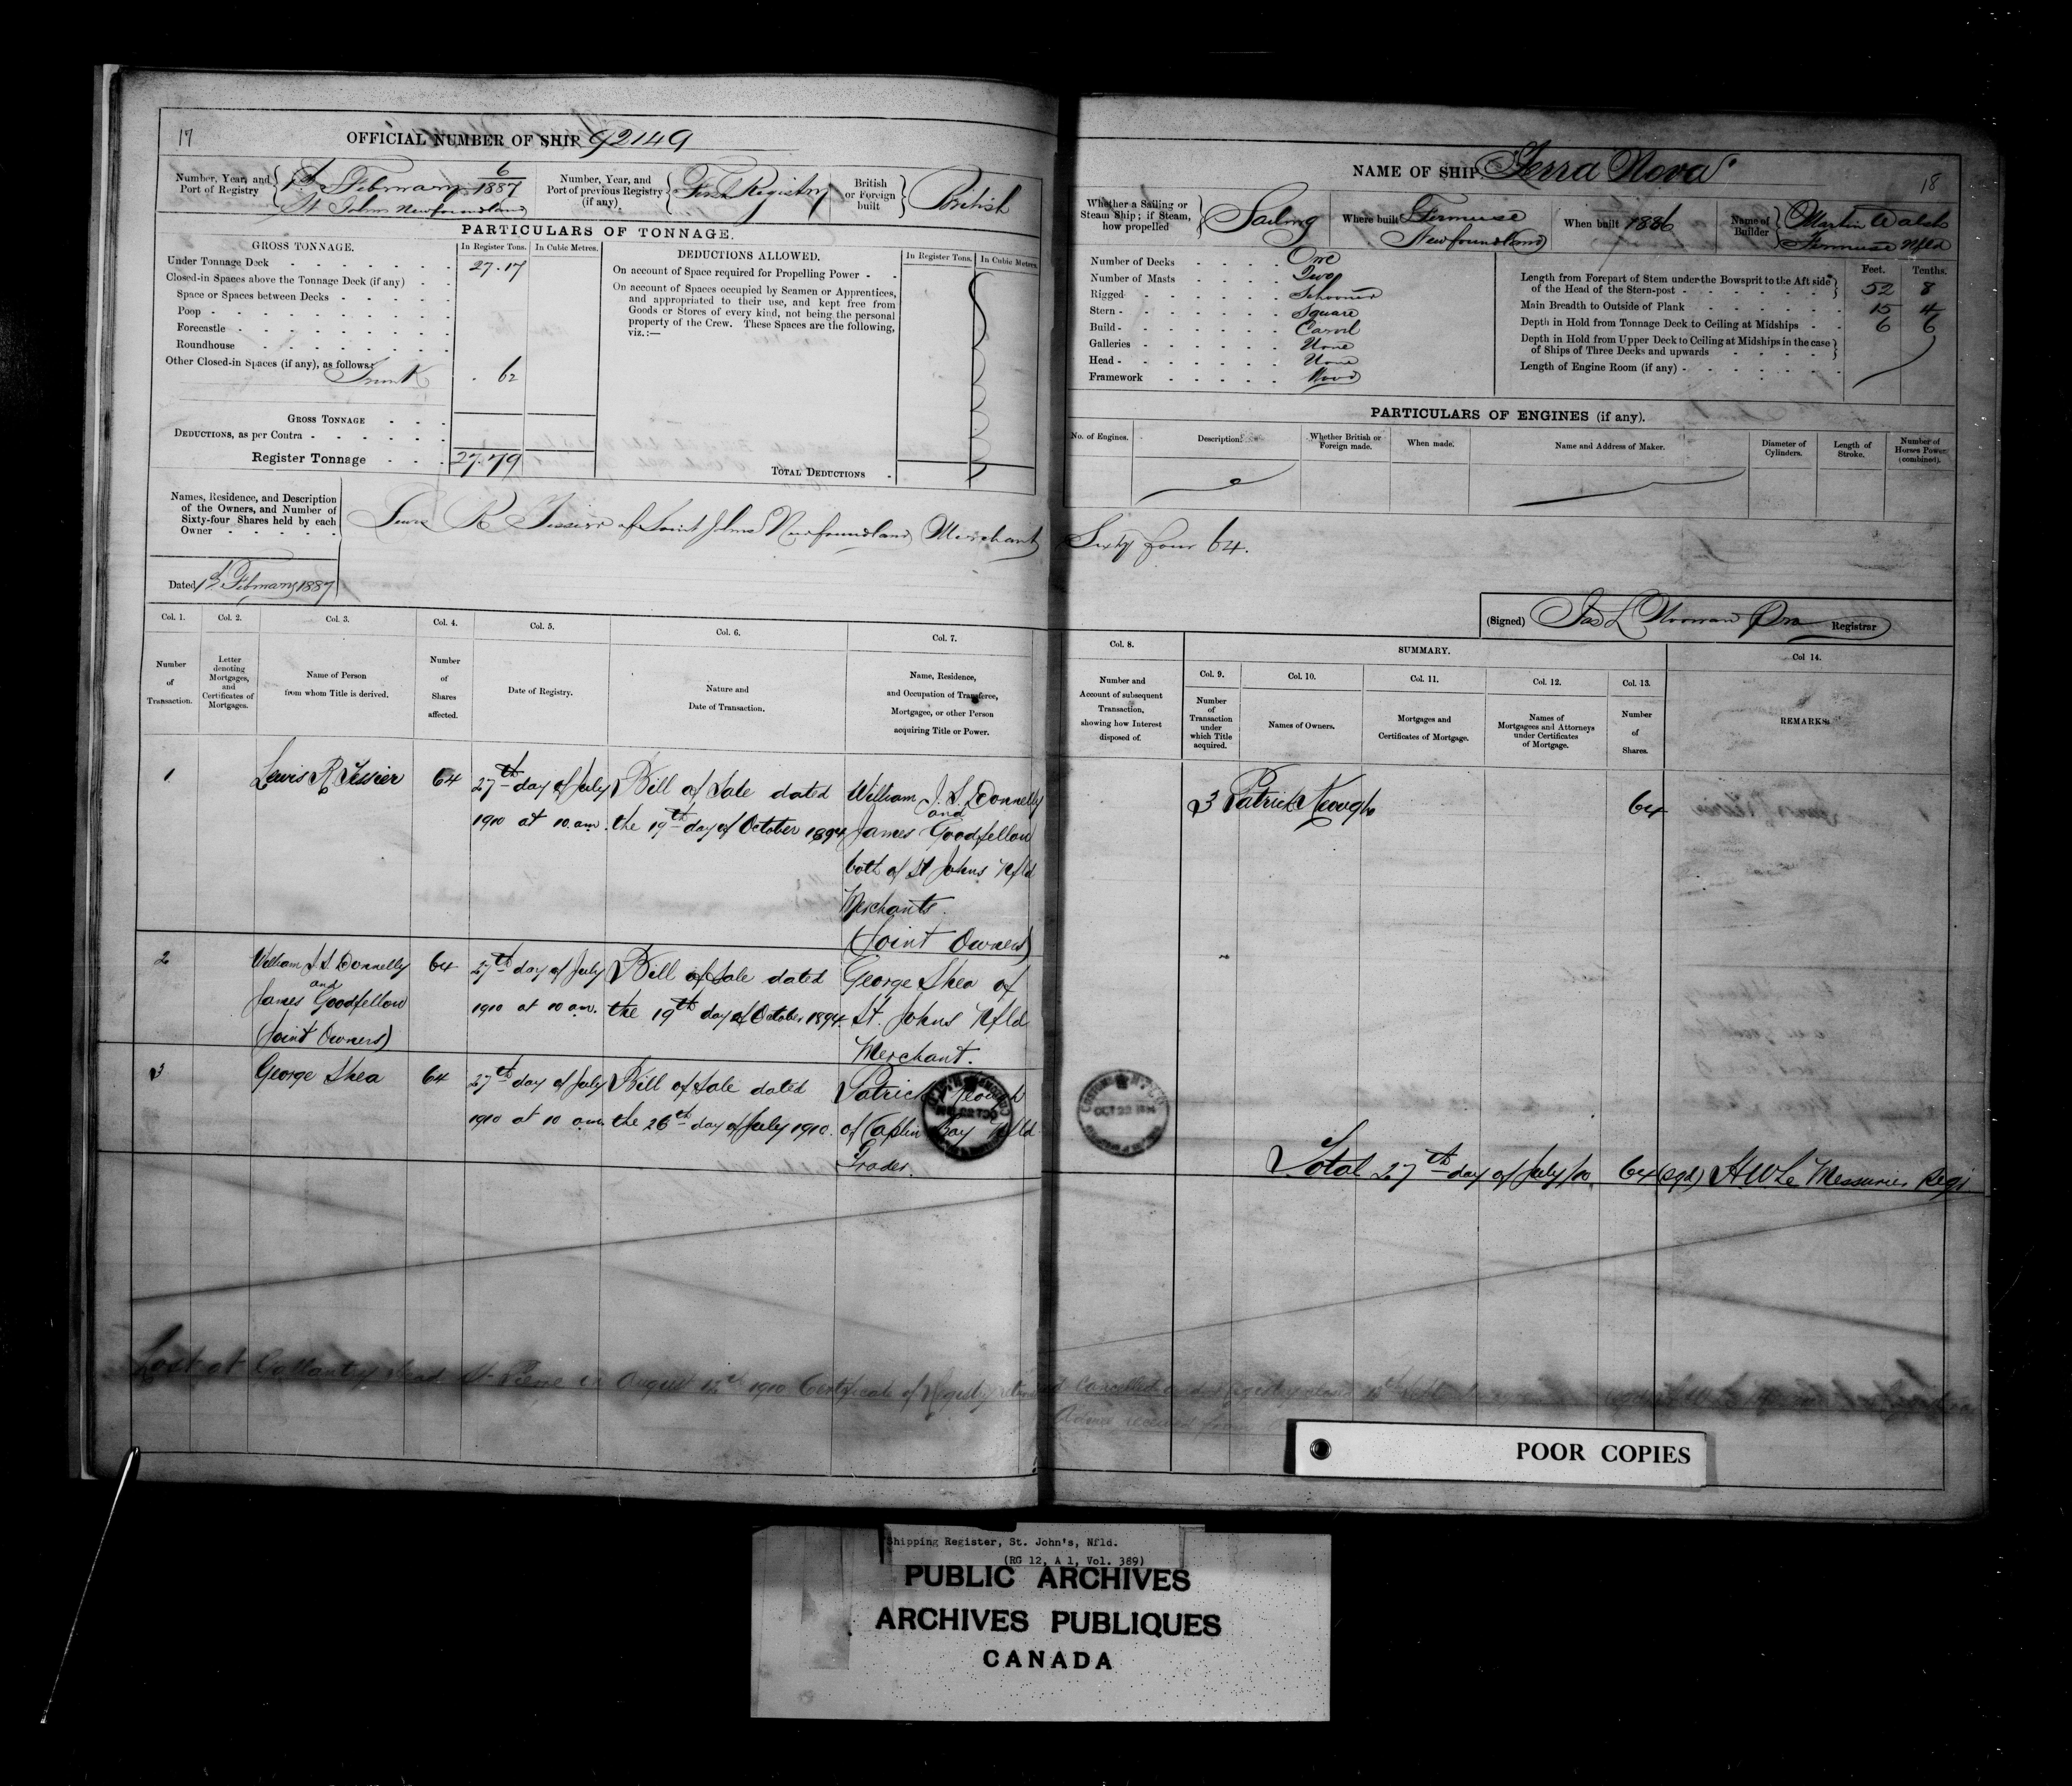 17
OFFICIAL NUMBER OF SHIP 92149
Number, Year, and Port of Registry
6
1st February 1887
St Johns Newfoundland
Number, Year, and Port of previous Registry (if any)
First Registry
British or Foreign built
British
PARTICULARS OF TONNAGE.
GROSS TONNAGE.
In Register Tons.
In Cubic Metres.
Under Tonnage Deck 27.17
Closed-in Spaces above the Tonnage Deck (if any)
Space or Spaces between Decks
Poop
Forecastle
Roundhouse
Other Closed-in Spaces (if any), as follows:
Trunk . 62
GROSS TONNAGE
DEDUCTIONS, as per Contra
Register Tonnage 27.79
DEDUCTIONS ALLOWED.
In Register Tons.
In Cubic Metres.
On account of Space required for Propelling Power
On account of Spaces occupied by Seamen or Apprentices,
and appropriated to their use, and kept free from
Goods or Stores of every kind, not being the personal
property of the Crew. These Spaces are the following,
viz.:—
TOTAL DEDUCTIONS
Names, Residence, and Description
of the Owners, and Number of
Sixty-four Shares held by each
Owner
Lewis R Tessier of Saint Johns Newfoundland Merchant Sixty four 64.
Dated 1st February 1887
NAME OF SHIP "Terra Nova"
18
Whether a Sailing or Steam Ship; if Steam, how propelled
Sailing
Where built
Fermuse
Newfoundland
When built 1886
Name of Builder
Martin Walsh
Fermuse Nfld
Number of Decks One
Number of Masts Two
Rigged Schooner
Stern Square
Build Carvel
Galleries None
Head None
Framework Wood
Feet. Tenths.
Length from Forepart of Stem under the Bowsprit to the Aft side
of the Head of the Stern-post 52 8
Main Breadth to Outside of Plank 15 4
Depth in Hold from Tonnage Deck to Ceiling at Midships 6 6
Depth in Hold from Upper Deck to Ceiling at Midships in the case
of Ships of Three Decks and upwards
Length of Engine Room (if any)
PARTICULARS OF ENGINES (if any).
No. of Engines.
Description.
Whether British or Foreign made.
When made.
Name and Address of Maker.
Diameter of Cylinders.
Length of Stroke.
Number of Horses Power (combined).
(Signed) Jas L Noonan Registrar
Col. 1. Col. 2. Col. 3. Col. 4. Col. 5. Col. 6. Col. 7.
Number of Transaction.
Letter denoting Mortgages, and Certificates of Mortgages.
Name of Person from whom Title is derived.
Number of Shares affected.
Date of Registry.
Nature and Date of Transaction.
Name, Residence, and Occupation of Transferee, Mortgagee, or other Person acquiring Title or Power.
Col. 8.
Number and Account of subsequent Transaction, showing how Interest disposed of.
SUMMARY.
Col. 9. Col. 10. Col. 11. Col. 12. Col. 13.
Number of Transaction under which Title acquired.
Names of Owners.
Mortgages and Certificates of Mortgage.
Names of Mortgagees and Attorneys under Certificates of Mortgage.
Number of Shares.
Col 14.
REMARKS.
1 Lewis R Tessier 64 27th day of July Bill of Sale dated William J. S. Donnelly
and
1910 at 10 a.m. the 19th day of October 1894 James Goodfellow
both of St Johns Nfld
Merchants.
(Joint Owners)
3 Patrick Keough 64
2 William J. S. Donnelly 64 27th day of July Bill of Sale dated George Shea of
and
James Goodfellow 1910 at 10 a.m. the 19th day of October 1894. St. Johns Nfld
(Joint Owners) Merchant.
3 George Shea 64 27th day of July Bill of Sale dated Patrick Keough
1910 at 10 a.m. the 26th day of July 1910. of Caplin Bay Nfld
Trader.
Total 27th day of July/10 64 (sgd) H W Le Messurier Regr
Lost at Gallantry Head St. Pierre in August 1910 Certificate of Registry cancelled and registry closed
Advice received from
POOR COPIES
Shipping Register, St. John's, Nfld.
(RG 12, A 1, Vol. 389)
PUBLIC ARCHIVES
ARCHIVES PUBLIQUES
CANADA